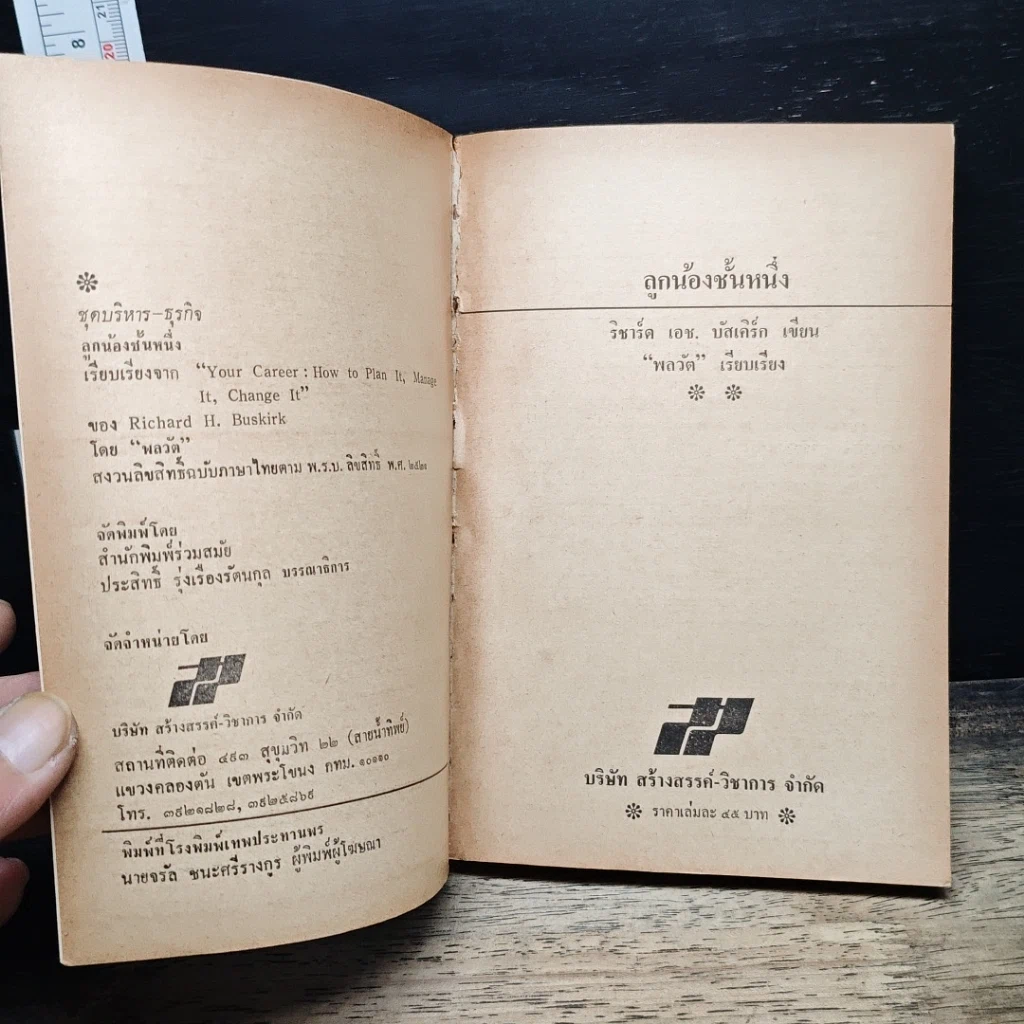 8
20
21
ชุดบริหาร-ธุรกิจ
ลูกน้องชั้นหนึ่ง
เรียบเรียงจาก “Your Career : How to Plan It, Manage
It, Change It”
ของ Richard H. Buskirk
โดย “พลวัต”
สงวนลิขสิทธิ์ฉบับภาษาไทยตาม พ.ร.บ. ลิขสิทธิ์ พ.ศ. ๒๕๒๑
จัดพิมพ์โดย
สำนักพิมพ์ร่วมสมัย
ประสิทธิ์ รุ่งเรืองรัตนกุล บรรณาธิการ
จัดจำหน่ายโดย
บริษัท สร้างสรรค์-วิชาการ จำกัด
สถานที่ติดต่อ ๔๙๓ สุขุมวิท ๒๒ (สายน้ำทิพย์)
แขวงคลองตัน เขตพระโขนง กทม. ๑๐๑๑๐
โทร. ๓๙๒๑๘๒๘, ๓๙๒๕๘๖๙
พิมพ์ที่โรงพิมพ์เทพประทานพร
นายจรัล ชนะศรีรางกูร ผู้พิมพ์ผู้โฆษณา
ลูกน้องชั้นหนึ่ง
ริชาร์ด เอช. บัสเคิร์ก เขียน
“พลวัต” เรียบเรียง
บริษัท สร้างสรรค์-วิชาการ จำกัด
ราคาเล่มละ ๔๕ บาท